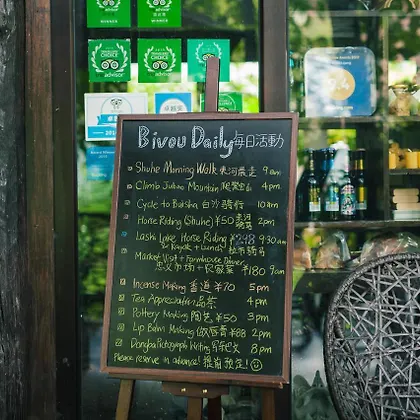 advisor
advisor
advisor
advisor
Bivou Daily 每日活動
Shuhe Morning Walk 束河晨走 9 am
Climb Jubao Mountain 爬聚宝山 4 pm
Cycle to Baisha 白沙骑行 10 am
Horse Riding (Shuhe) ¥50 束河骑马 2 pm
Lashi Lake Horse Riding ¥298 9:30 am
(+ Kayak + Lunch) 拉市骑马
Market Visit + Farmhouse Dinner
忠义市场 + 农家菜 ¥180 9 am
Incense Making 香道 ¥70 5 pm
Tea Appreciation 品茶 4 pm
Pottery Making 陶艺 ¥50 3 pm
Lip Balm Making 做唇膏 ¥88 2 pm
Dongba Pictograph Writing 写东巴文 8 pm
Please reserve in advance! 提前预定!